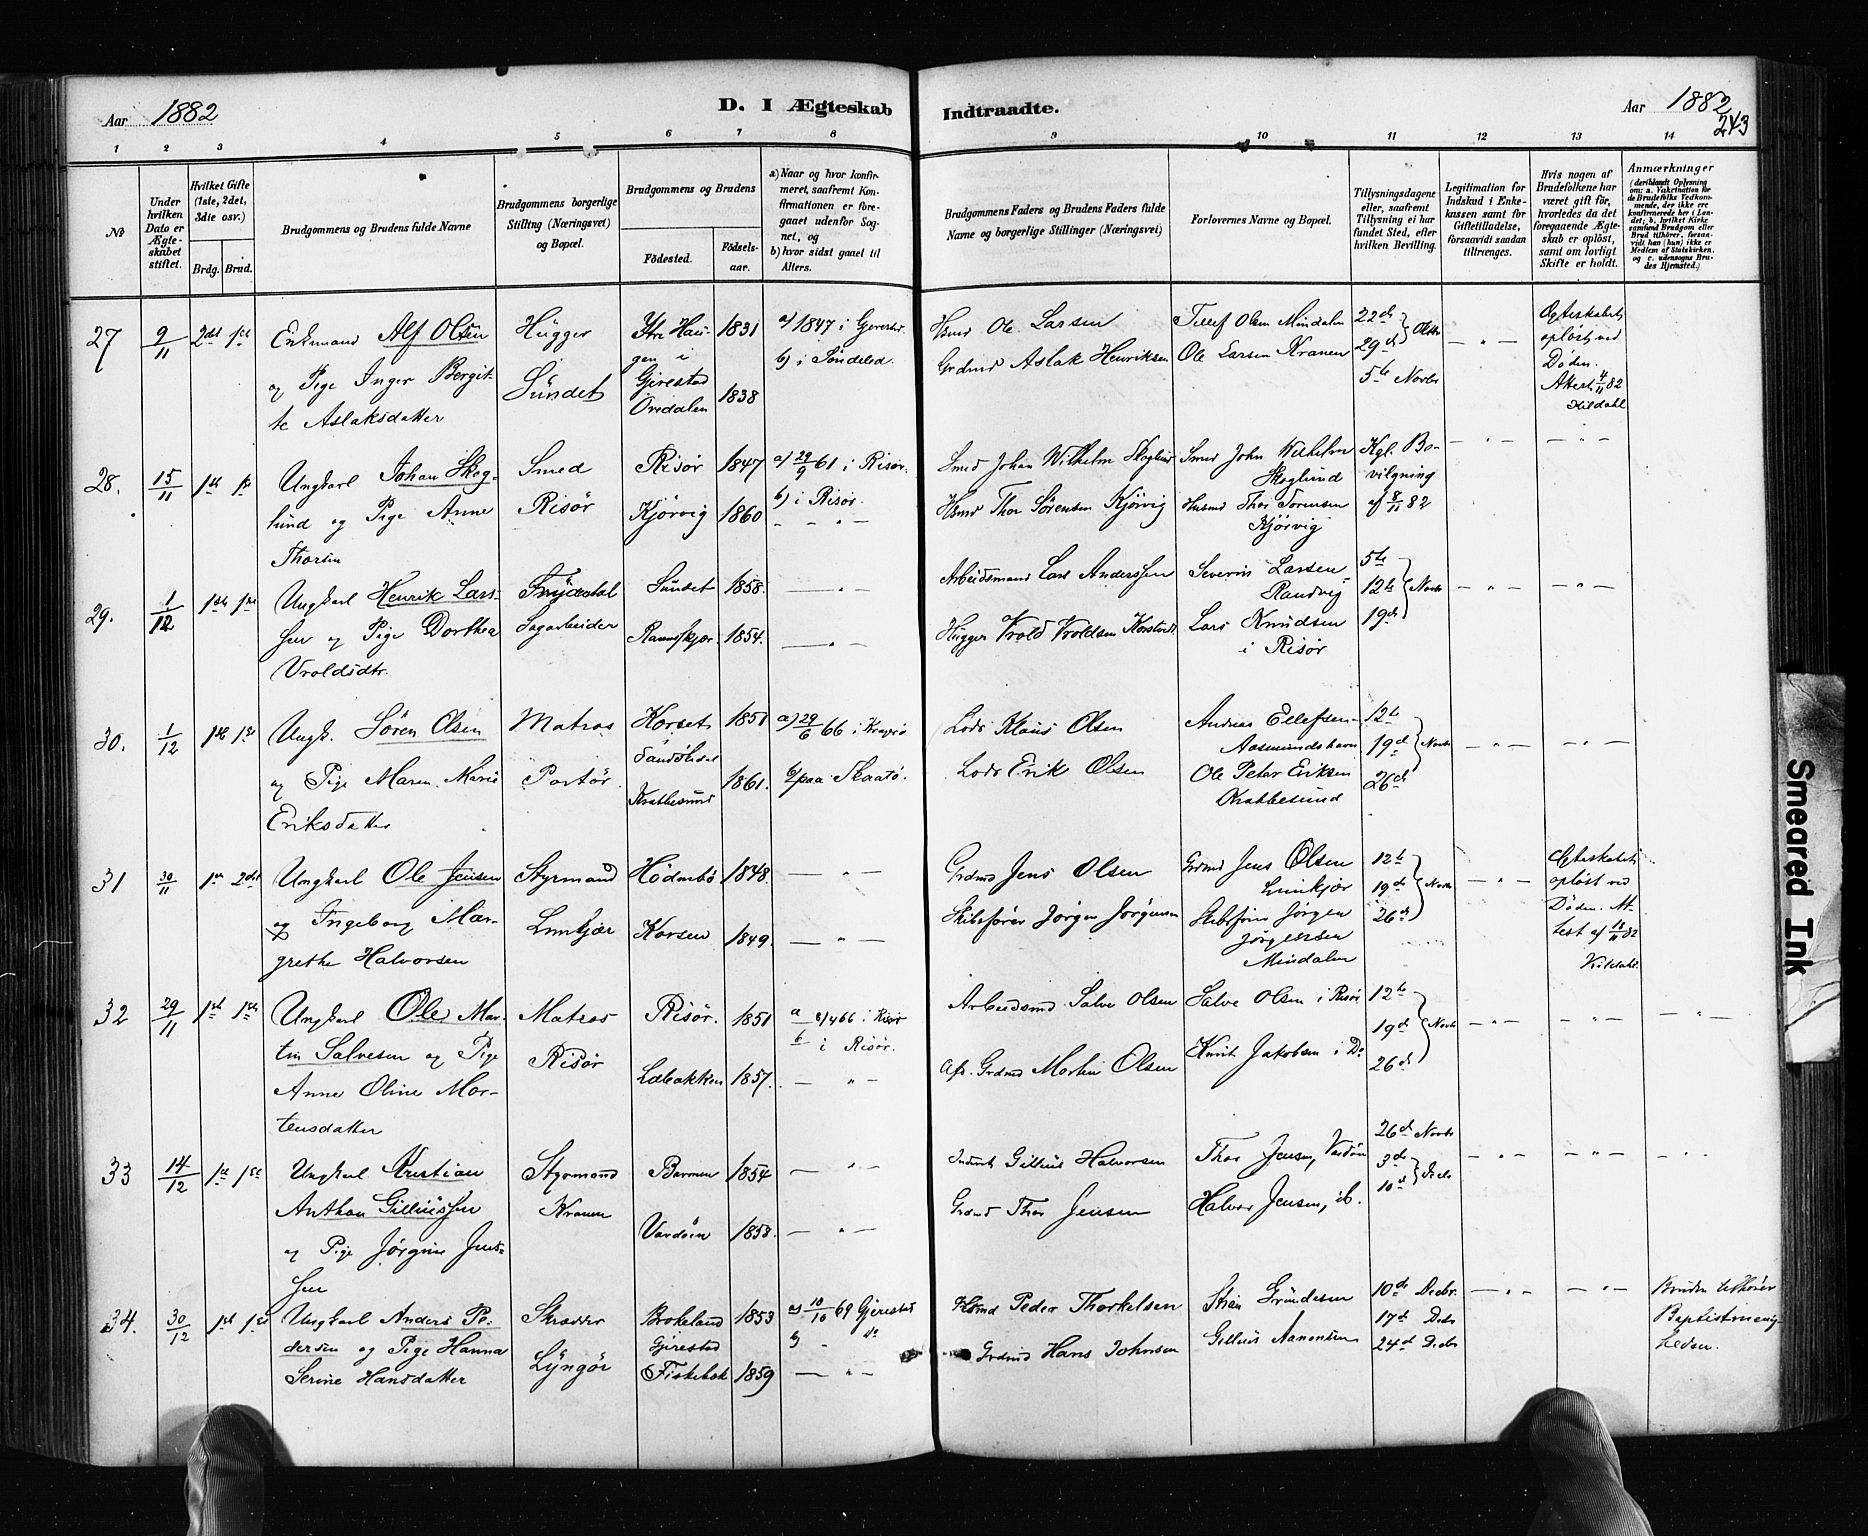 Aar 1882
D. I Ægteskab Indtraadte.
Aar 1882
243
1 2 3 4 5 6 7 8 9 10 11 12 13 14
No
Under hvilken Dato er Ægteskabet stiftet.
Hvilket Gifte (1ste, 2det, 3die osv.)
Brdg. Brud.
Brudgommens og Brudens fulde Navne
Brudgommens borgerlige Stilling (Næringsvei) og Bopæl.
Brudgommens og Brudens
Födested.
Födselsaar.
a) Naar og hvor konfirmeret, saafremt Konfirmationen er foregaaet udenfor Sognet, og
b) hvor sidst gaaet til Alters.
Brudgommens Faders og Brudens Faders fulde Navne og borgerlige Stillinger (Næringsvei)
Forlovernes Navne og Bopæl.
Tillysningsdagene eller, saafremt Tillysning ei har fundet Sted, efter hvilken Bevilling.
Legitimation for Indskud i Enkekassen samt for Giftetilladelse, forsaavidt saadan tiltrænges.
Hvis nogen af Brudefolkene har været gift för, hvorledes da det foregaaende Ægteskab er oplöst, samt om lovligt Skifte er holdt.
Anmærkninger
(deriblandt Oplysning om: a. Vakcination for de Brudefolks Vedkommende, der ikke ere konfirmerede her i Landet; b. hvilket Kirkesamfund Brudgom eller Brud tilhörer, forsaavidt han (hun) ikke er Medlem af Statskirken, og c. udensogns Brudes Hjemsted.)
27 9/11 2det 1ste
Enkemand Alf Olsen
og Pige Inger Bergit-
te Aslaksdatter
Hugger
Sundet
Ytre Hau-
gen i
Gjerestad 1831
Oredalen 1838
a) 1847 i Gjerestad
b) i Söndeled.
Hsmd Ole Larsen
Grdmd Aslak Henriksen
Tellef Olsen Mindalen
Ole Larsen Kranen
22de
29de Oktbr
5te Novbr
Ægteskabet
oplöst ved
Döden.
Attest 4/11 82
Kildahl
28. 15/11 1ste 1ste
Ungkarl Johan Skog-
lund og Pige Anne
Thorsen
Smed
Risör
Risör 1847
Kjörvig 1860
a) 29/9 61 i Risör.
b) i Risör.
Smed Johan Wilhelm Skoglund
Hsmd Thor Sörensen Kjörvig
Smed John Wilhelm
Skoglund
Husmd Thor Sorensen
Kjörvig
Kgl. Be-
vilgning
af 8/11 82
29. 1/12 1ste 1ste
Ungkarl Henrik Lars-
sen og Pige Dorthea
Vroldsdtr.
Sagarbeider
Sundet 1858.
1854.
Arbeidsmand Lars Anderssen
Hugger Vrold Vroldsen
Severin Larsen
Randvig
Lars Knudsen
i Risör
5te
12te Novbr
19de
30. 1/12 1ste 1ste
Ungk. Sören Olsen
og Pige Maren Marie
Eriksdatter
Matros
Portör.
Korset 1851
Krabbesund 1861.
a) 29/6 66 i Kragerö
b) paa Skaatö.
Lods Klaus Olsen
Lods Erik Olsen
Andreas Ellefsen
Aasmundshavn
Ole Peter Eriksen
Krabbesund
12te
19de Novbr
26de
31 30/11 1ste 2det
Ungkarl Ole Jensen
og Ingeborg Mar-
grethe Halvorsen
Styrmand
Limkjær
Hödnebö 1848.
Korsen 1849.
Grdmd Jens Olsen
Skibsförer Jörgen Jörgensen
Grdmd Jens Olsen
Limkjær
Skibsförer Jörgen
Jörgensen
Mindalen
12te
19de Novbr
26de
Ægteskabet
oplöst ved
Döden. At-
test af 82
Kildahl.
32 29/11 1ste 1ste
Ungkarl Ole Mar-
tin Salvesen og Pige
Anne Oline Mor-
tensdatter
Matros
Risör
Risör. 1851
Lobakken 1857.
a 8/4 66 i Risör
b i Risör.
Arbeidsmd Salve Olsen
Afd. Grdmd Morten Olsen
Salve Olsen i Risör
Knut Jakobsen i Do
12te
19de Novbr
26de
33 14/12 1ste 1ste
Ungkarl Kristian
Anthon Gilliussen
og Pige Jörgine Jens-
sen
Styrmand
Kranen
Barmen 1854
Vardöen 1858.
Inderst Gillius Halvorsen
Grdmd Thor Jensen
Thor Jensen, Vardöen
Halvor Jensen, ib.
26de Novbr
3de
10de Decbr
34. 30/12 1ste 1ste
Ungkarl Anders Pe-
dersen og Pige Hanna
Serine Hansdatter
Skrædder
Lyngör
Brokeland 1853
Gjerestad
Fiskebæk 1859
a) 10/10 69 Gjerestad
b) do
Hsmd Peder Thorkelsen
Grdmd Hans Johnsen
Stian Gundersen
Gillius Aanonsen
10de Decbr.
17de Decbr
24de Decbr
Bruden tilhörer
Baptistmenig-
heden.
Smeared Ink